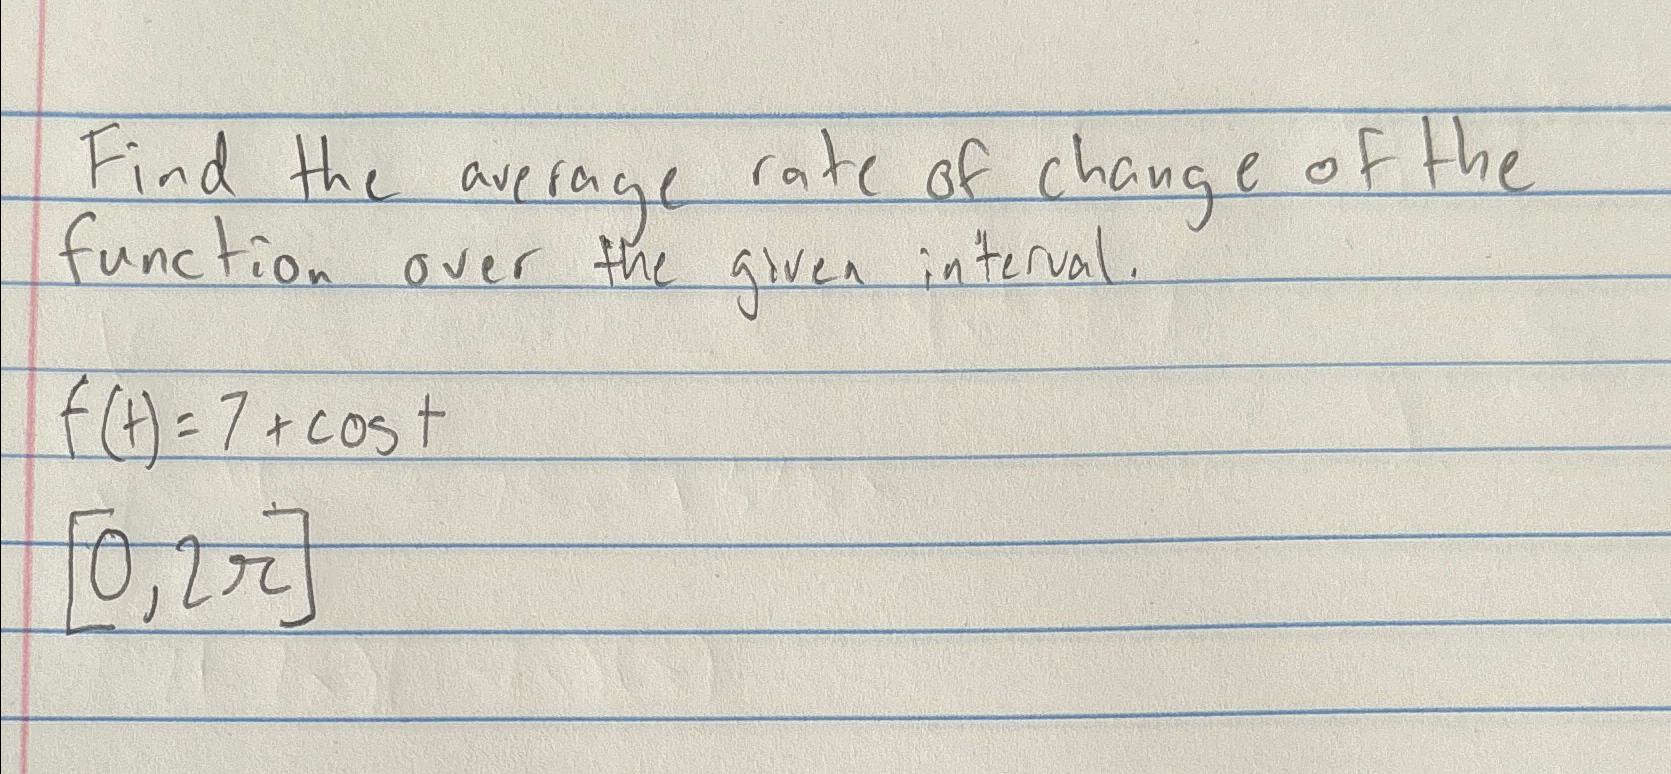 Find the average rate of change of the
function over the given interval.
f(t) = 7 + cos t
[0, 2π]